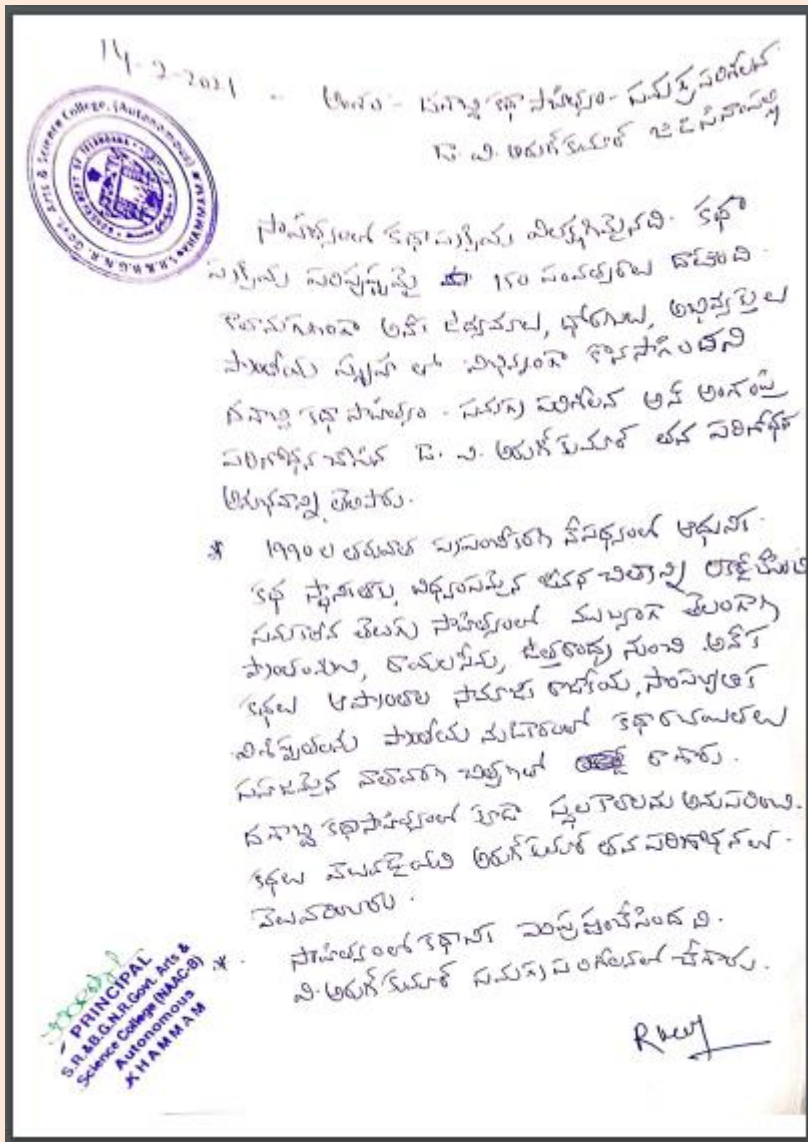 14-2-2021 - అంశం - దశాబ్ది కథా సాహిత్యం - సమగ్ర పరిశీలన
డా. వి. అరుణ్ కుమార్
S.R.&B.G.N.R. Govt. Arts & Science College, (Autonomous)
GOVERNMENT OF TELANGANA
సాహిత్యంలో కథా ప్రక్రియ విలక్షణమైనది. కథా
ప్రక్రియ పరిపుష్టమై 150 సంవత్సరాలు దాటింది.
అనేక ఉద్యమాలు, ధోరణులు, అభివ్యక్తులు
ప్రాంతీయ స్పృహ లో విభిన్నంగా కొనసాగిందని
దశాబ్ది కథా సాహిత్యం - సమగ్ర పరిశీలన అనే అంశంపై
పరిశోధన చేసిన డా. వి. అరుణ్ కుమార్ తన పరిశోధన
అనుభవాన్ని తెలిపారు.
* 1990 ల తరువాత ప్రపంచీకరణ నేపథ్యంలో ఆధునిక
కథ స్థానికత, విధ్వంసమైన జీవన చిత్రాన్ని
సమకాలీన తెలుగు సాహిత్యంలో ముఖ్యంగా తెలంగాణ
రాయలసీమ, ఉత్తరాంధ్ర నుంచి అనేక
కథలు ఆప్రాంతాల సామాజిక రాజకీయ, సాంస్కృతిక
విశిష్టతలను ప్రాంతీయ నుడికారంలో కథా రచయితలు
సహజమైన వాతావరణ చిత్రణలో రాశారు.
దశాబ్ది కథాసాహిత్యంలో కూడా స్థలకాలాలను అనుసరించి
కథలు వెలువడ్డాయని అరుణ్ కుమార్ తన పరిశోధనలో
వెలువరించారు.
* సాహిత్యంలో కథానిక
వి. అరుణ్ కుమార్ సమగ్ర పరిశీలనలో చేశారు.
PRINCIPAL
S.R.&B.G.N.R.Govt. Arts &
Science College (NAAC-B)
Autonomous
KHAMMAM